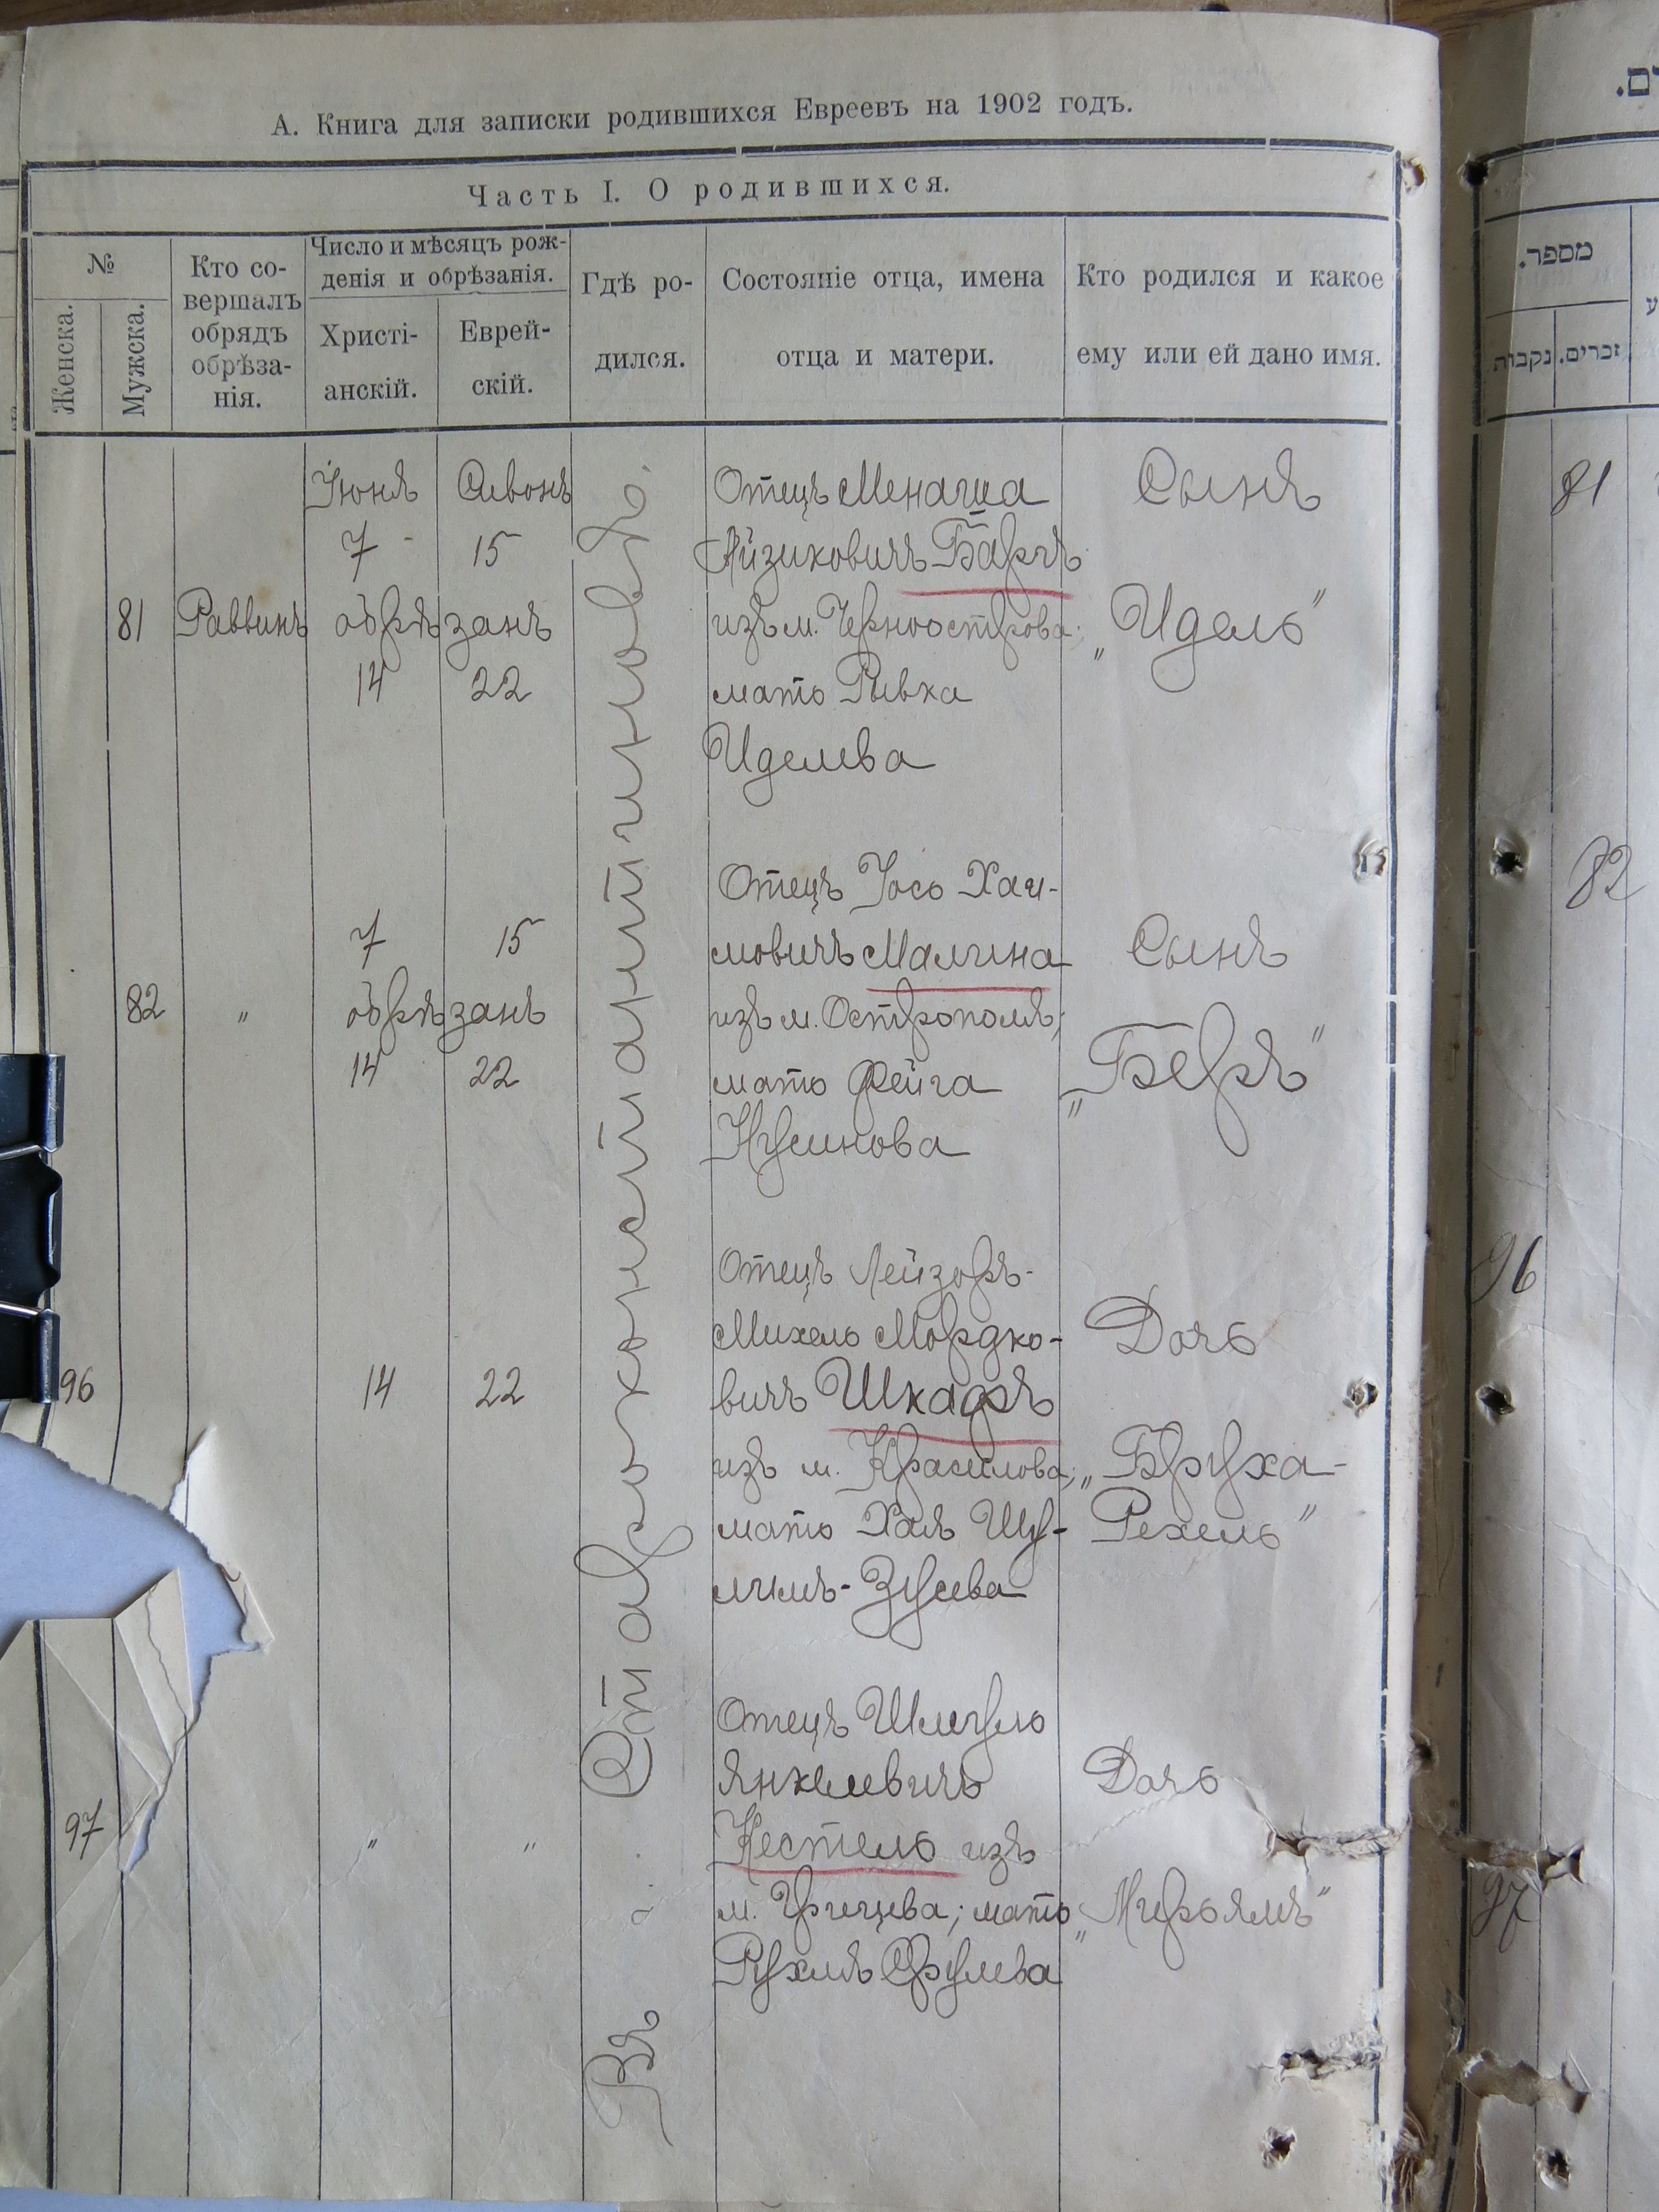 А. Книга для записки родившихся Евреевъ на 1902 годъ.
Часть I. О родившихся.
№
Женска.
Мужска.
Кто со-
вершалъ
обрядъ
обрѣза-
нія.
Число и мѣсяцъ рож-
денія и обрѣзанія.
Христі-
анскій.
Еврей-
скій.
Гдѣ ро-
дился.
Состояніе отца, имена
отца и матери.
Кто родился и какое
ему или ей дано имя.
Въ г. Староконстантиновѣ.
81
Раввинъ
Іюня Сивонъ
7 15
обрѣзанъ
14 22
Отецъ Менаша
Айзиковичъ Барчъ
изъ м. Черноострова;
мать Ривка
Иделева
Сынъ
„Идель"
82
"
7 15
обрѣзанъ
14 22
Отецъ Іось Хаи-
мовичъ Малина
изъ м. Острополя;
мать Фейга
Нусинова
Сынъ
„Беръ"
96
14 22
Отецъ Лейзоръ-
Михель Мордко-
вичъ Шкафъ
изъ м. Красилова;
мать Хая Шу-
лимъ-Зусева
Дочь
„Бруха-
Рехель"
97
" "
Отецъ Шмуль
Янкелевичъ
Кестель изъ
м. Грицева; мать
Рухля Срулева
Дочь
„Мирьямъ"
ם.
מספר.
נקבות
זכרים.
81
82
96
97